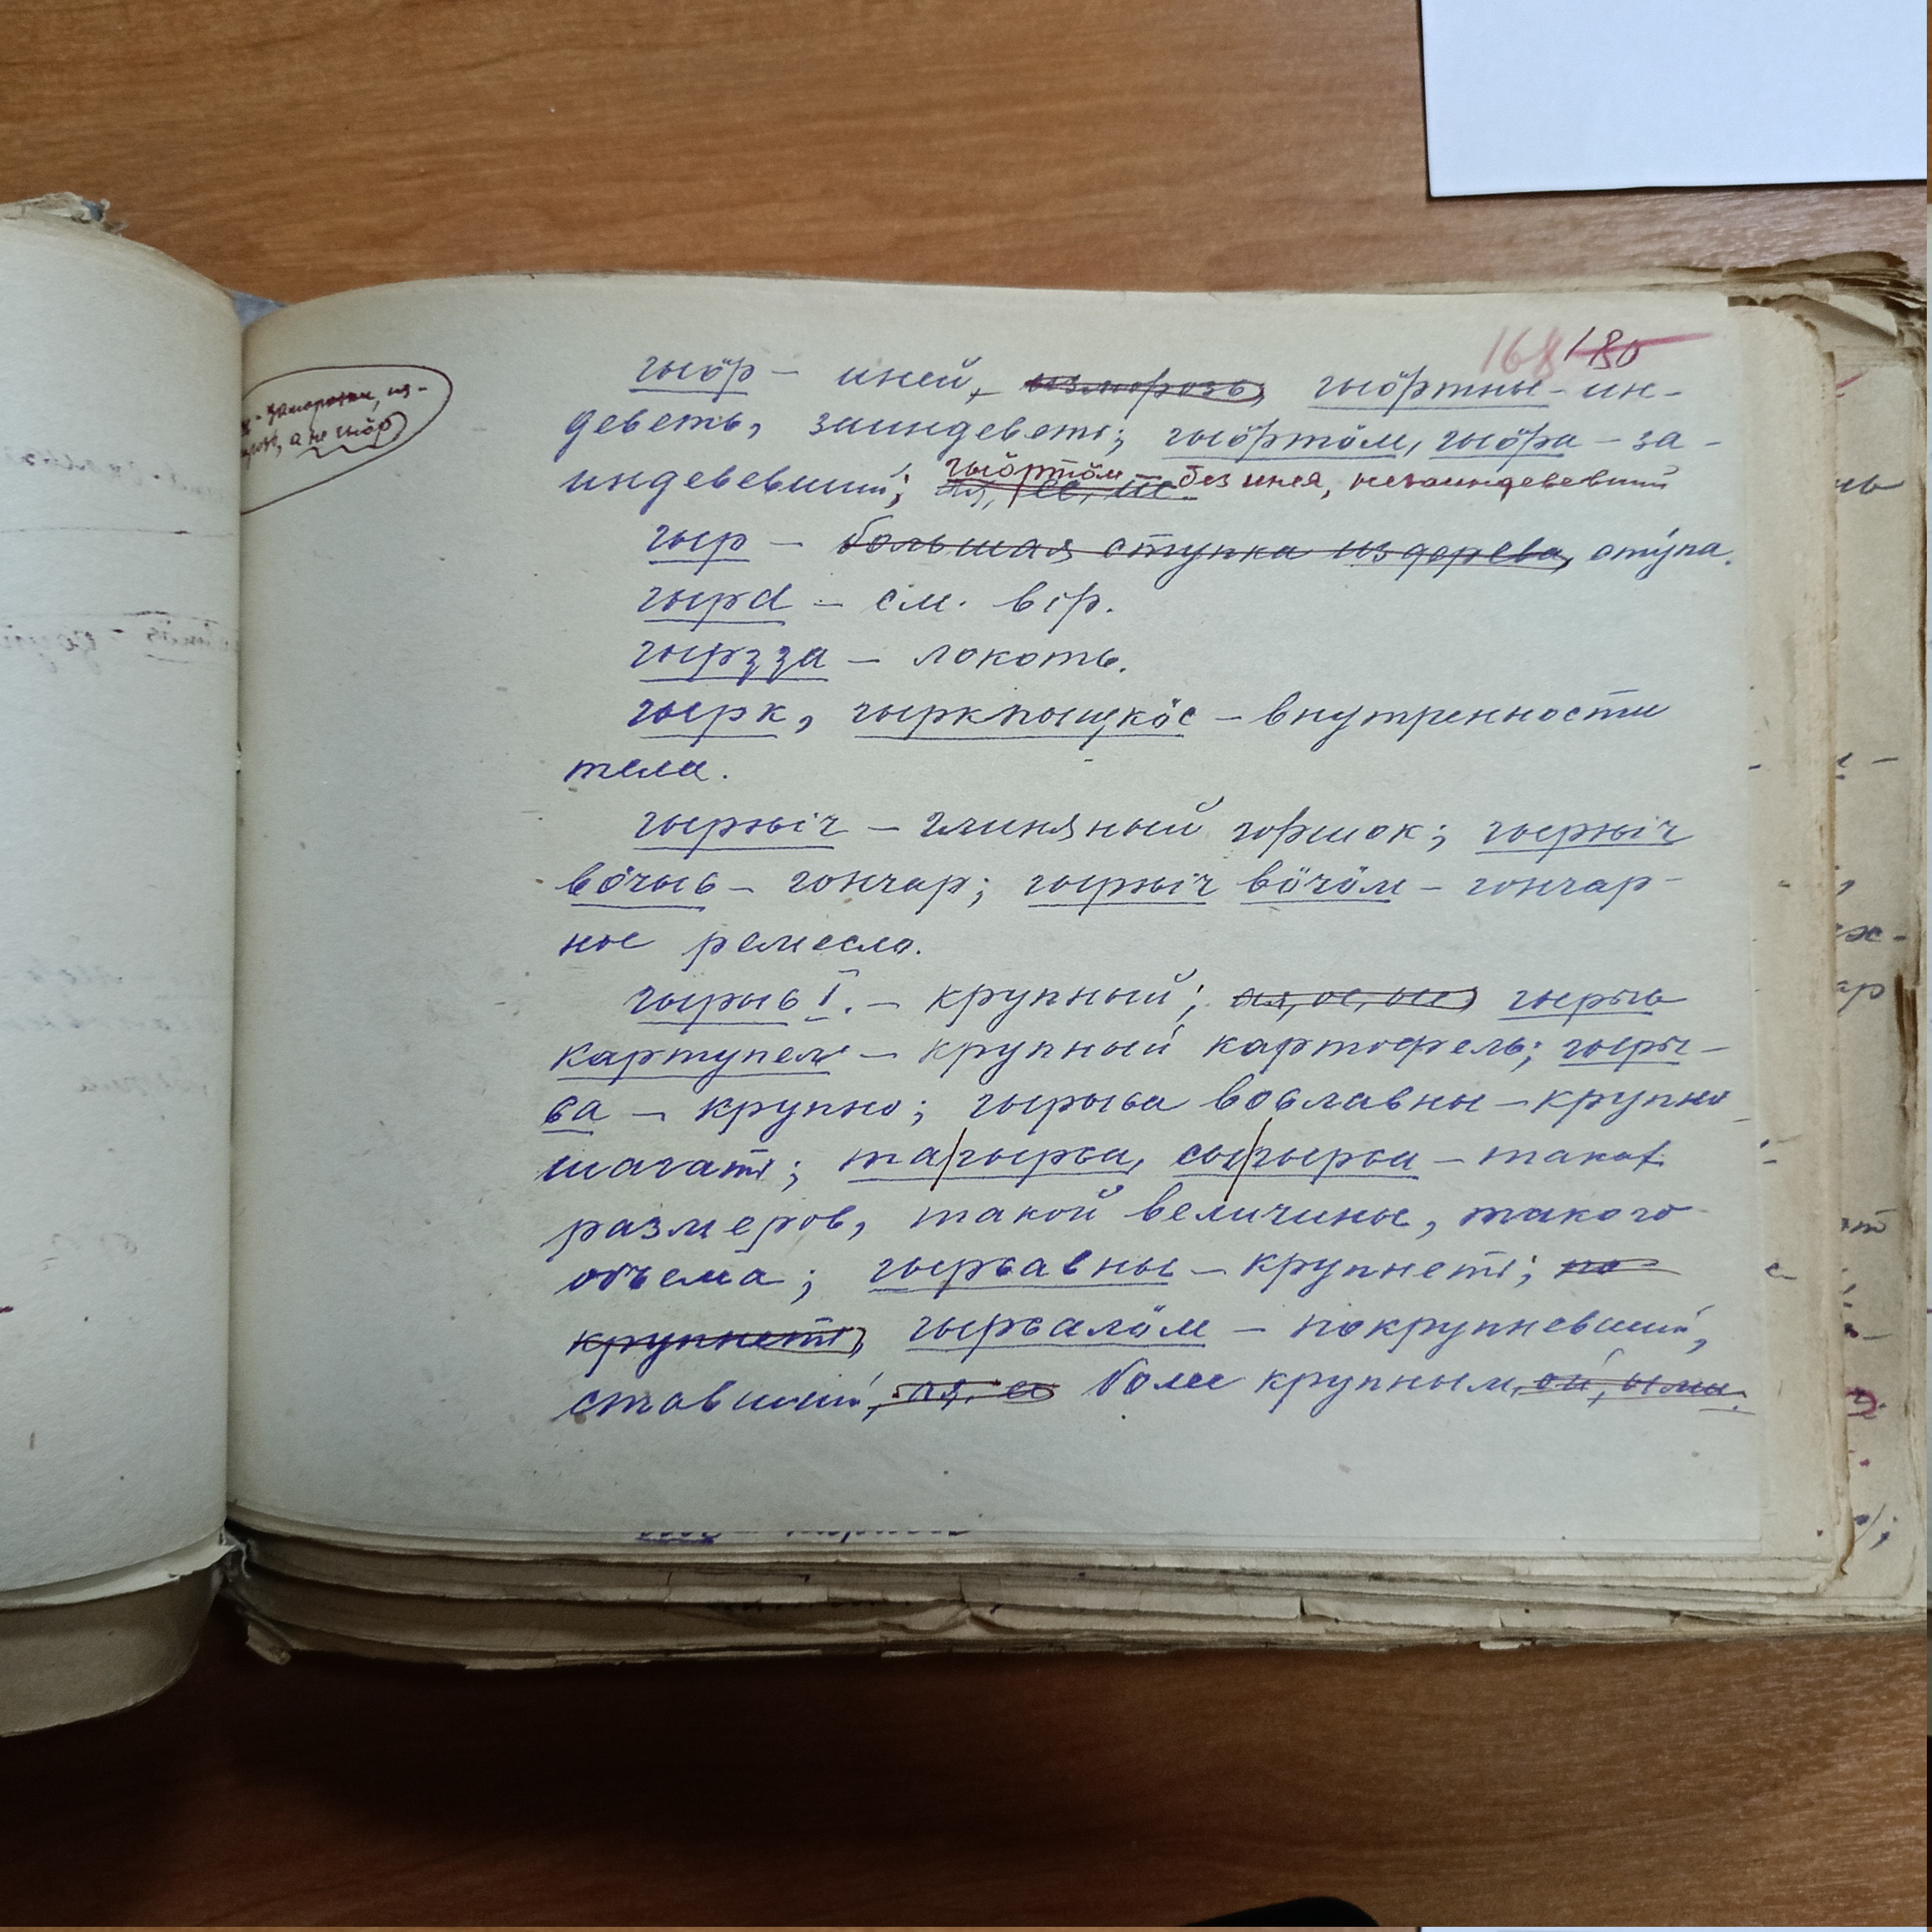 168 180
гыӧр – иней, изморозь, гыӧртны – ин-
деветь, заиндеветь; гыӧртӧм, гыӧра – за-
индевевший; ая, ее, ие
гыӧртӧм – без инея, незаиндевевший
гыр – большая ступка из дерева, ступа.
гырԁ – см. вір.
гырԇԇа – локоть.
гырк, гыркпыщкӧс – внутренности
тела.
гырныіч – глиняный горшок; гырныіч
вӧчыԍ – гончар; гырныіч вӧчӧм – гончар-
ное ремесло.
гырыԍ I. – крупный; ая, ое, ые, гырыԍ
картупеԉ – крупный картофель; гыры-
ԍа – крупно; гырыԍа воԍлавны – крупно
шагать; та/гырԍа, сы/гырԍа – таких
размеров, такой величины, такого
объема; гырԍавны – крупнеть; по-
крупнеть, гырԍалӧм – покрупневший,
ставший, ая, ее более крупным, ой, ыми.
заморозки, из-
а не гыӧр